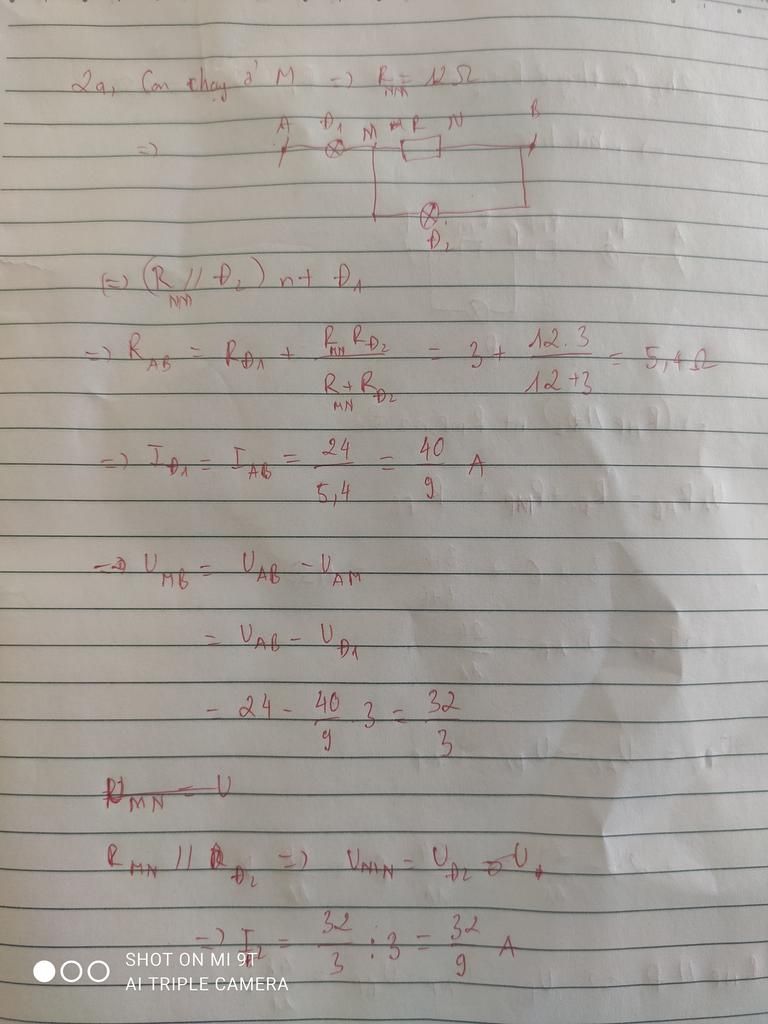 2a, Con chạy ở M => R_MN = 12Ω
=> A Đ1 M R N B
Đ2
(=) (R_MN // Đ2) nt Đ1
=> R_AB = R_Đ1 + (R_MN R_Đ2)/(R_MN + R_Đ2) = 3 + (12.3)/(12+3) = 5,4Ω
=> I_Đ1 = I_AB = 24/5,4 = 40/9 A
=> U_MB = U_AB - U_AM
= U_AB - U_Đ1
= 24 - 40/9 3 = 32/3
R_MN // R_Đ2 => U_MN = U_Đ2
=> I_2 = 32/3 : 3 = 32/9 A
SHOT ON MI 9T
AI TRIPLE CAMERA